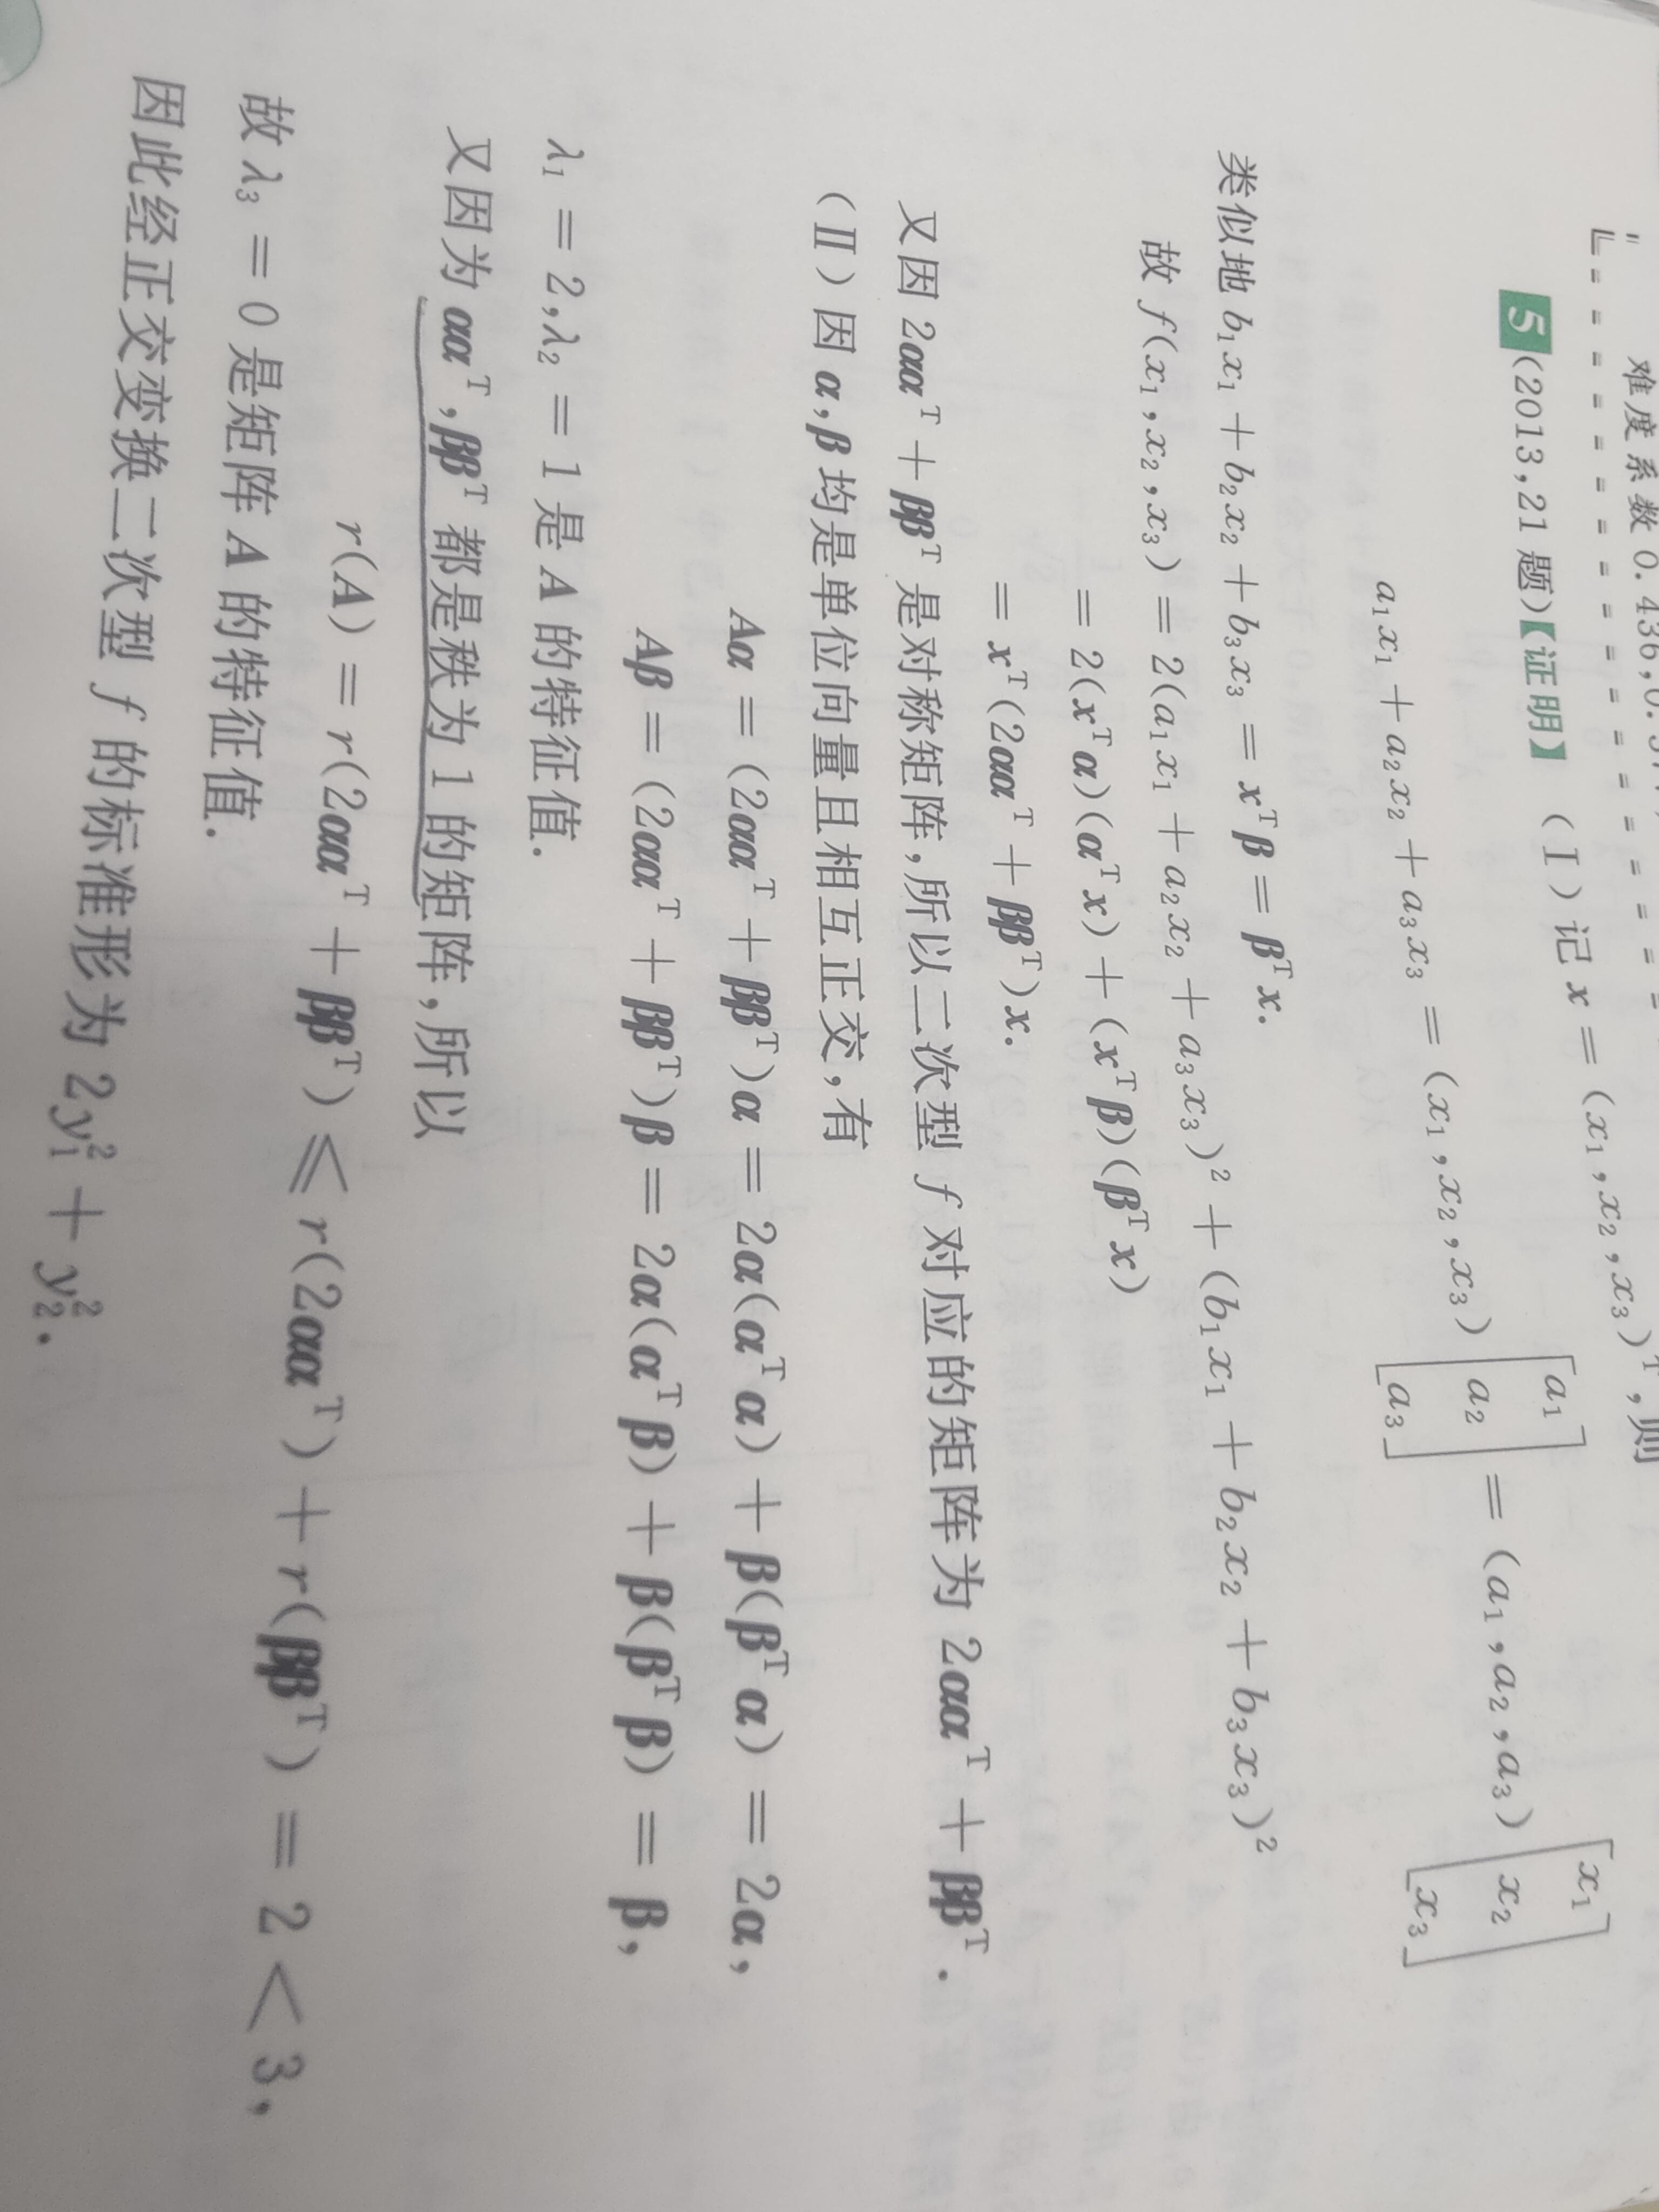 难度系数 0.436,0.
5 (2013,21 题)【证明】 (Ⅰ)记 x = (x₁,x₂,x₃)ᵀ,则
a₁x₁ + a₂x₂ + a₃x₃ = (x₁,x₂,x₃) [a₁ a₂ a₃] = (a₁,a₂,a₃) [x₁ x₂ x₃]
类似地 b₁x₁ + b₂x₂ + b₃x₃ = xᵀβ = βᵀx.
故 f(x₁,x₂,x₃) = 2(a₁x₁ + a₂x₂ + a₃x₃)² + (b₁x₁ + b₂x₂ + b₃x₃)²
= 2(xᵀα)(αᵀx) + (xᵀβ)(βᵀx)
= xᵀ(2ααᵀ + ββᵀ)x.
又因 2ααᵀ + ββᵀ 是对称矩阵,所以二次型 f 对应的矩阵为 2ααᵀ + ββᵀ.
(Ⅱ)因 α,β 均是单位向量且相互正交,有
Aα = (2ααᵀ + ββᵀ)α = 2α(αᵀα) + β(βᵀα) = 2α,
Aβ = (2ααᵀ + ββᵀ)β = 2α(αᵀβ) + β(βᵀβ) = β,
λ₁ = 2,λ₂ = 1 是 A 的特征值.
又因为 ααᵀ,ββᵀ 都是秩为 1 的矩阵,所以
r(A) = r(2ααᵀ + ββᵀ) ≤ r(2ααᵀ) + r(ββᵀ) = 2 < 3,
故 λ₃ = 0 是矩阵 A 的特征值.
因此经正交变换二次型 f 的标准形为 2y₁² + y₂².